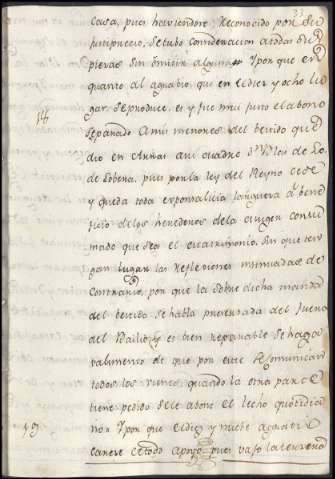 casa, pues haviendose Reconocido por el
justiprecio, se tubo consideracion a todas sus
piezas sin omitir alguna, Y por que en
quanto al agravio, que en el diez y ocho lu
gar se produce, es y fue mui justo el abono
separado a mis menores del bestido que
dio en
de Lobera, pues por la ley del Reyno cede
y queda toda exponsalicia larguera a bene
ficio de los herederos de la muger consu
mado que sea el matrimonio, sin que ten
gan lugar las reflexiones insinuadas de
contrario, por que la sobre dicha manda
del bestido se habla presentada del Jues
de Bailio, y es bien reparable se haga
valimento de que por este se comunican
todos los vienes, quando la otra parte
tiene pedido se le abone el lecho quotidia
no, Y por que el diez y nuebe agravio
carece de todo apoyo, pues vajo la
19